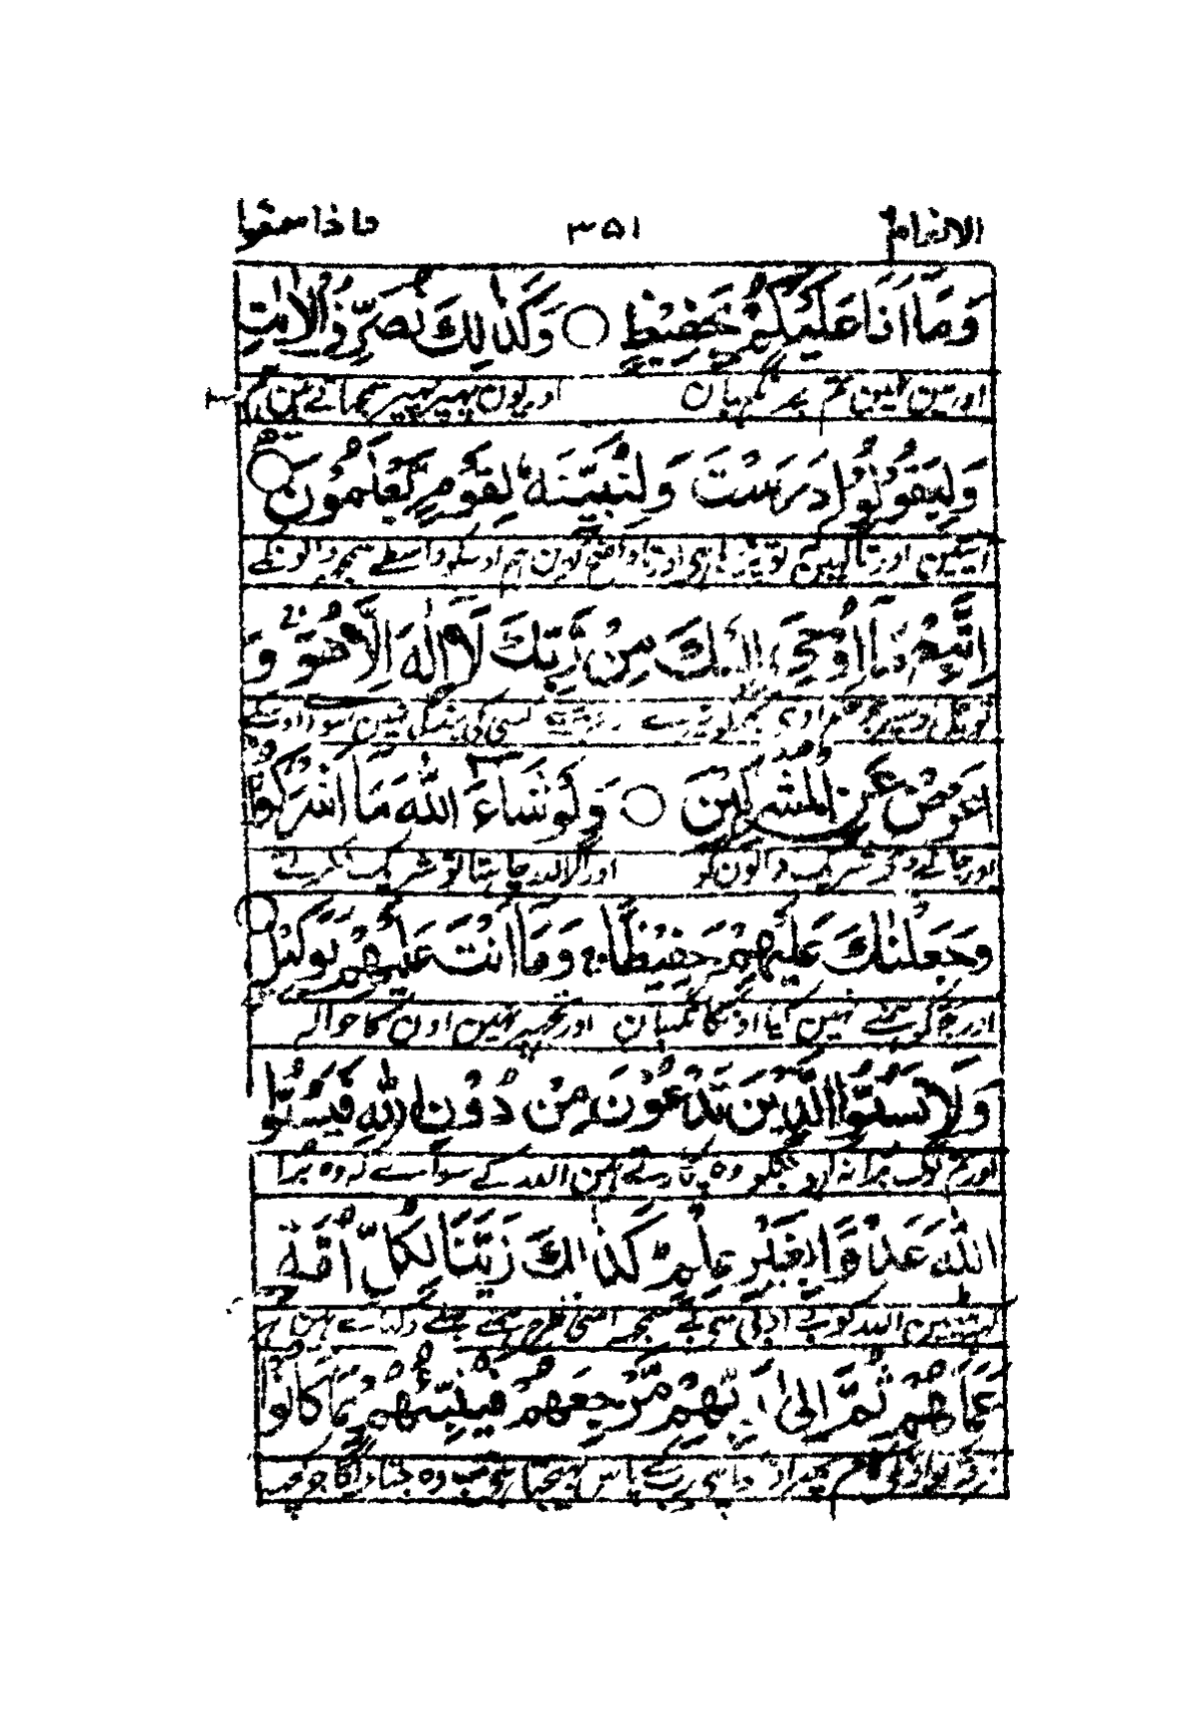 الانعام ٣٥١ و اذا سمعوا
وَمَآ اَنَا عَلَيْكُمْ بِحَفِيْظٍ ○ وَكَذٰلِكَ نُصَرِّفُ الْاٰيٰتِ
اور مین نہین تم پر نگہبان اور یون پھیر پھیر سمجھاتے ہین ہم
وَلِيَقُوْلُوْا دَرَسْتَ وَلِنُبَيِّنَهٗ لِقَوْمٍ يَّعْلَمُوْنَ ○
آیتین اور تا کہین کہ تو پڑھا ہی اور تا واضح کرین ہم اوسکو واسطے سمجھ والونکے
اِتَّبِعْ مَآ اُوْحِيَ اِلَيْكَ مِنْ رَّبِّكَ لَآ اِلٰهَ اِلَّا هُوَ وَ
تو چل اوسپر جو حکم آوی تجھکو تیرے رب سے کسی کی بندگی نہین سوا اوسکے
اَعْرِضْ عَنِ الْمُشْرِكِيْنَ ○ وَلَوْ شَآءَ اللّٰهُ مَآ اَشْرَكُوْا
اور جانے دے شریک والون کو اور اگر اللہ چاہتا تو شریک نکرتے
وَجَعَلْنٰكَ عَلَيْهِمْ حَفِيْظًا وَمَآ اَنْتَ عَلَيْهِمْ بِوَكِيْلٍ ○
اور تجھکو ہمنے نہین کیا اونکا نگہبان اور تجھپر نہین اون کا حوالہ
وَلَا تَسُبُّوا الَّذِيْنَ يَدْعُوْنَ مِنْ دُوْنِ اللّٰهِ فَيَسُبُّوا
اور تم لوگ برا نہ کہو جنکو وہ پکارتے ہین اللہ کے سوا سے کہ وہ برا
اللّٰهَ عَدْوًۢا بِغَيْرِ عِلْمٍ كَذٰلِكَ زَيَّنَّا لِكُلِّ اُمَّةٍ
اللہ کو بے ادبی سی بے سمجھے اسی طرح ہمنے بھلے دکھائے ہین
عَمَلَهُمْ ثُمَّ اِلٰى رَبِّهِمْ مَّرْجِعُهُمْ فَيُنَبِّئُهُمْ بِمَا كَانُوْا
پھر اون کو اپنے رب کے پاس پہنچنا ہی تب وہ جتا دیگا جو کچھ